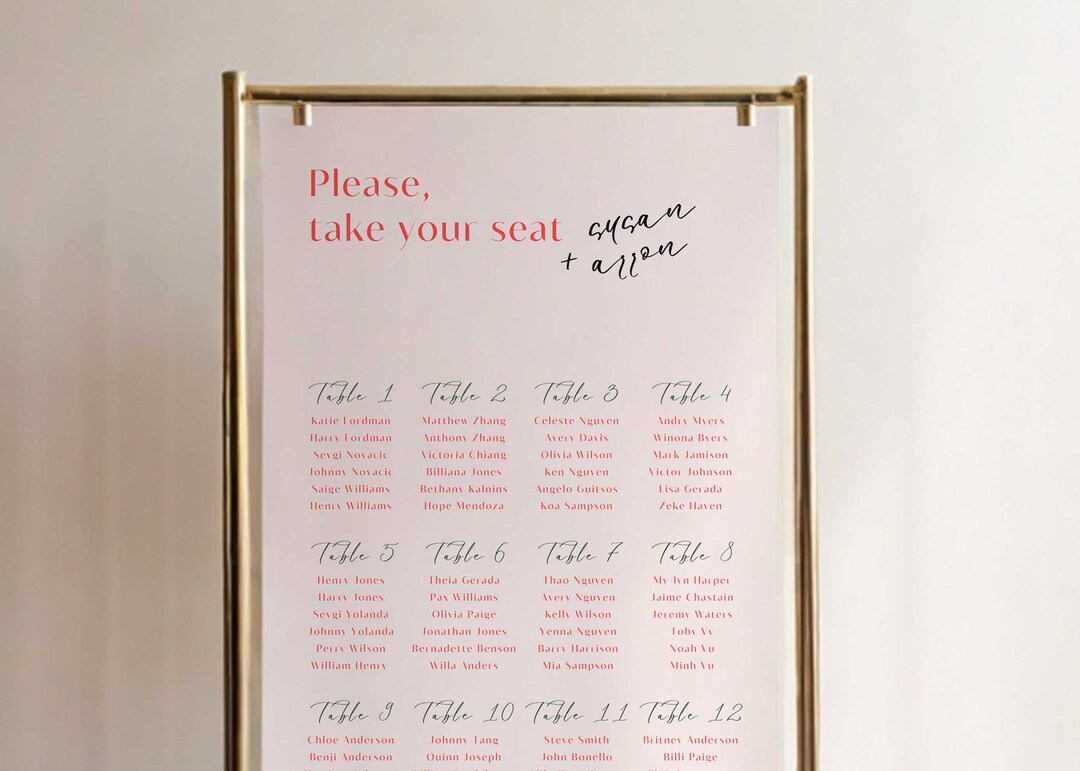 Please,
take your seat
susan
+ arron
Table 1
Katie Fordman
Harry Fordman
Sevgi Novacic
Johnny Novacic
Saige Williams
Henry Williams
Table 2
Matthew Zhang
Anthony Zhang
Victoria Chiang
Billiana Jones
Bethany Kalnins
Hope Mendoza
Table 3
Celeste Nguyen
Avery Davis
Olivia Wilson
Ken Nguyen
Angelo Guitsos
Koa Sampson
Table 4
Andry Myers
Winona Byers
Mark Jamison
Victor Johnson
Lisa Gerada
Zeke Haven
Table 5
Henry Jones
Harry Jones
Sevgi Yolanda
Johnny Yolanda
Perry Wilson
William Henry
Table 6
Theia Gerada
Pax Williams
Olivia Paige
Jonathan Jones
Bernadette Benson
Willa Anders
Table 7
Thao Nguyen
Avery Nguyen
Kelly Wilson
Yenna Nguyen
Barry Harrison
Mia Sampson
Table 8
My-lyn Harper
Jaime Chastain
Jeremy Waters
Toby Vy
Noah Vu
Minh Vu
Table 9
Chloe Anderson
Benji Anderson
Table 10
Johnny Tang
Quinn Joseph
Table 11
Steve Smith
John Bonello
Table 12
Britney Anderson
Billi Paige